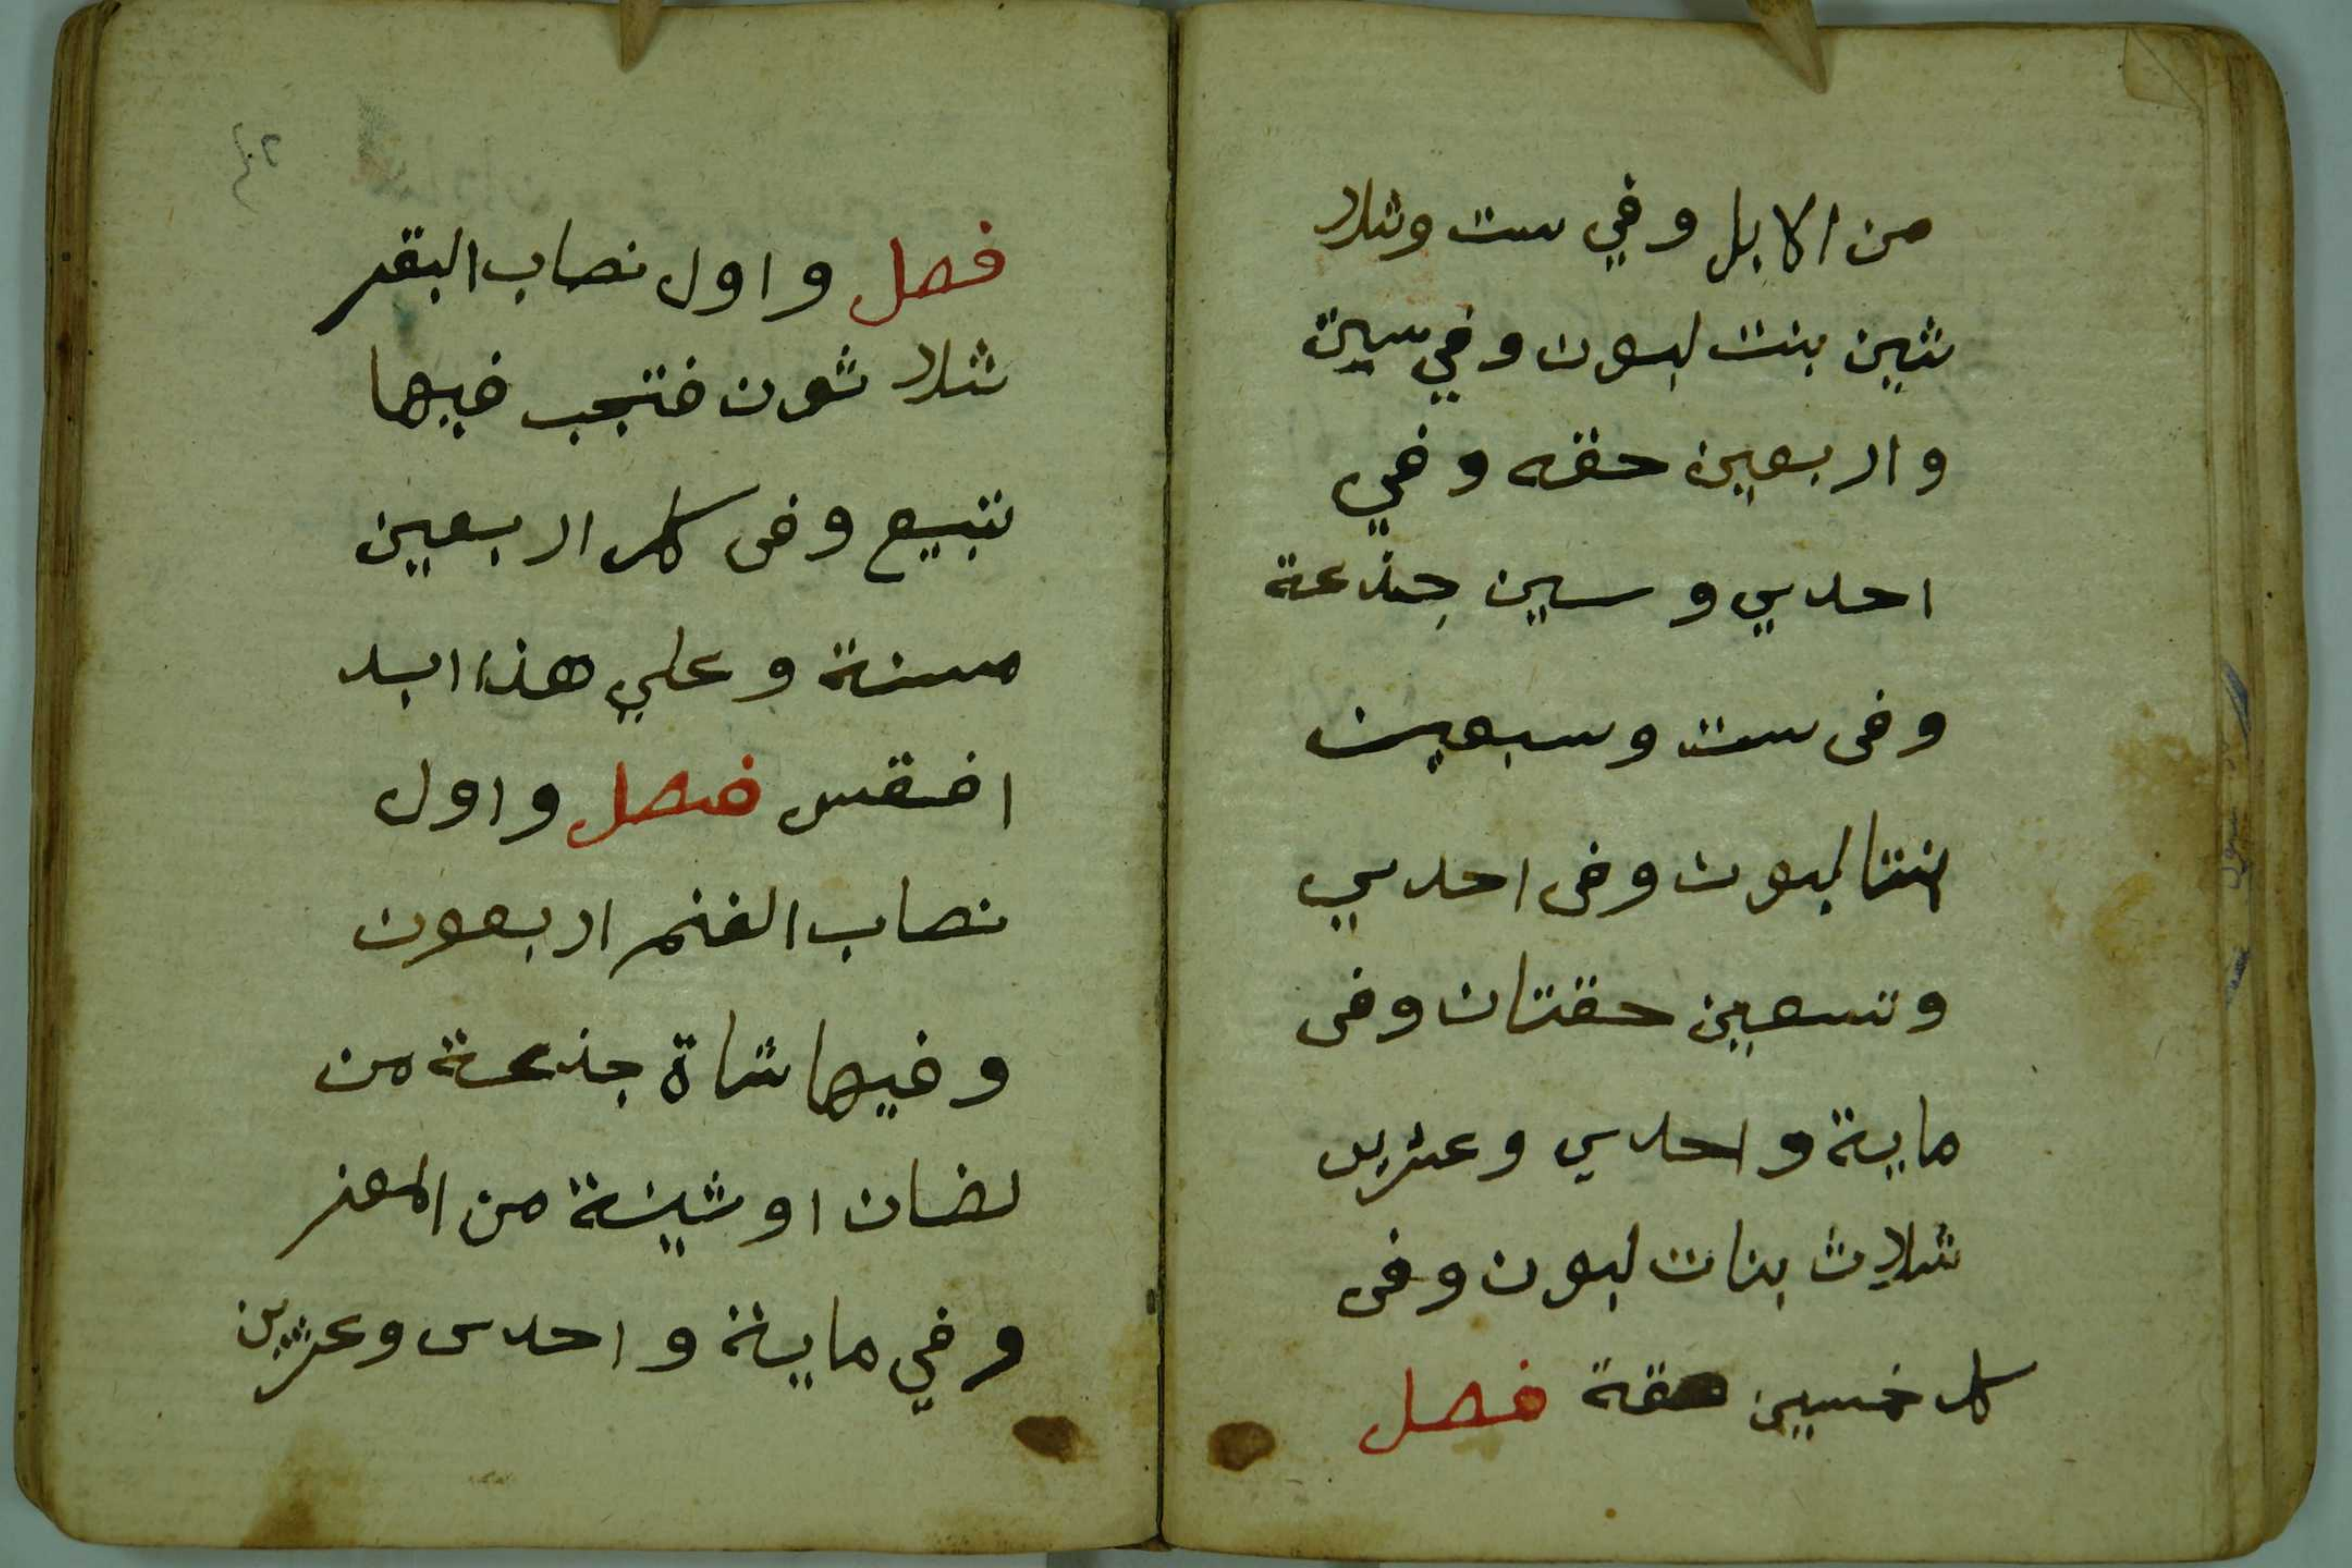 من الابل وفي ست وثلا
ثين بنت لبون وفي ستين
واربعين حقه وفي
احدي وستين جذعة
وفى ست وسبعين
بنتا لبون وفى احدي
وتسعين حقتان وفى
ماية واحدي وعشرين
ثلاث بنات لبون وفى
كل خمسين حقة فصل
فصل واول نصاب البقر
ثلا ثون فتجب فيها
تبيع وفى كل اربعين
مسنة وعلي هذا ابد
افقس فصل واول
نصاب الغنم اربعون
وفيها شاة جذعة من
لضان او ثنية من المعز
وفي ماية واحدى وعشرين